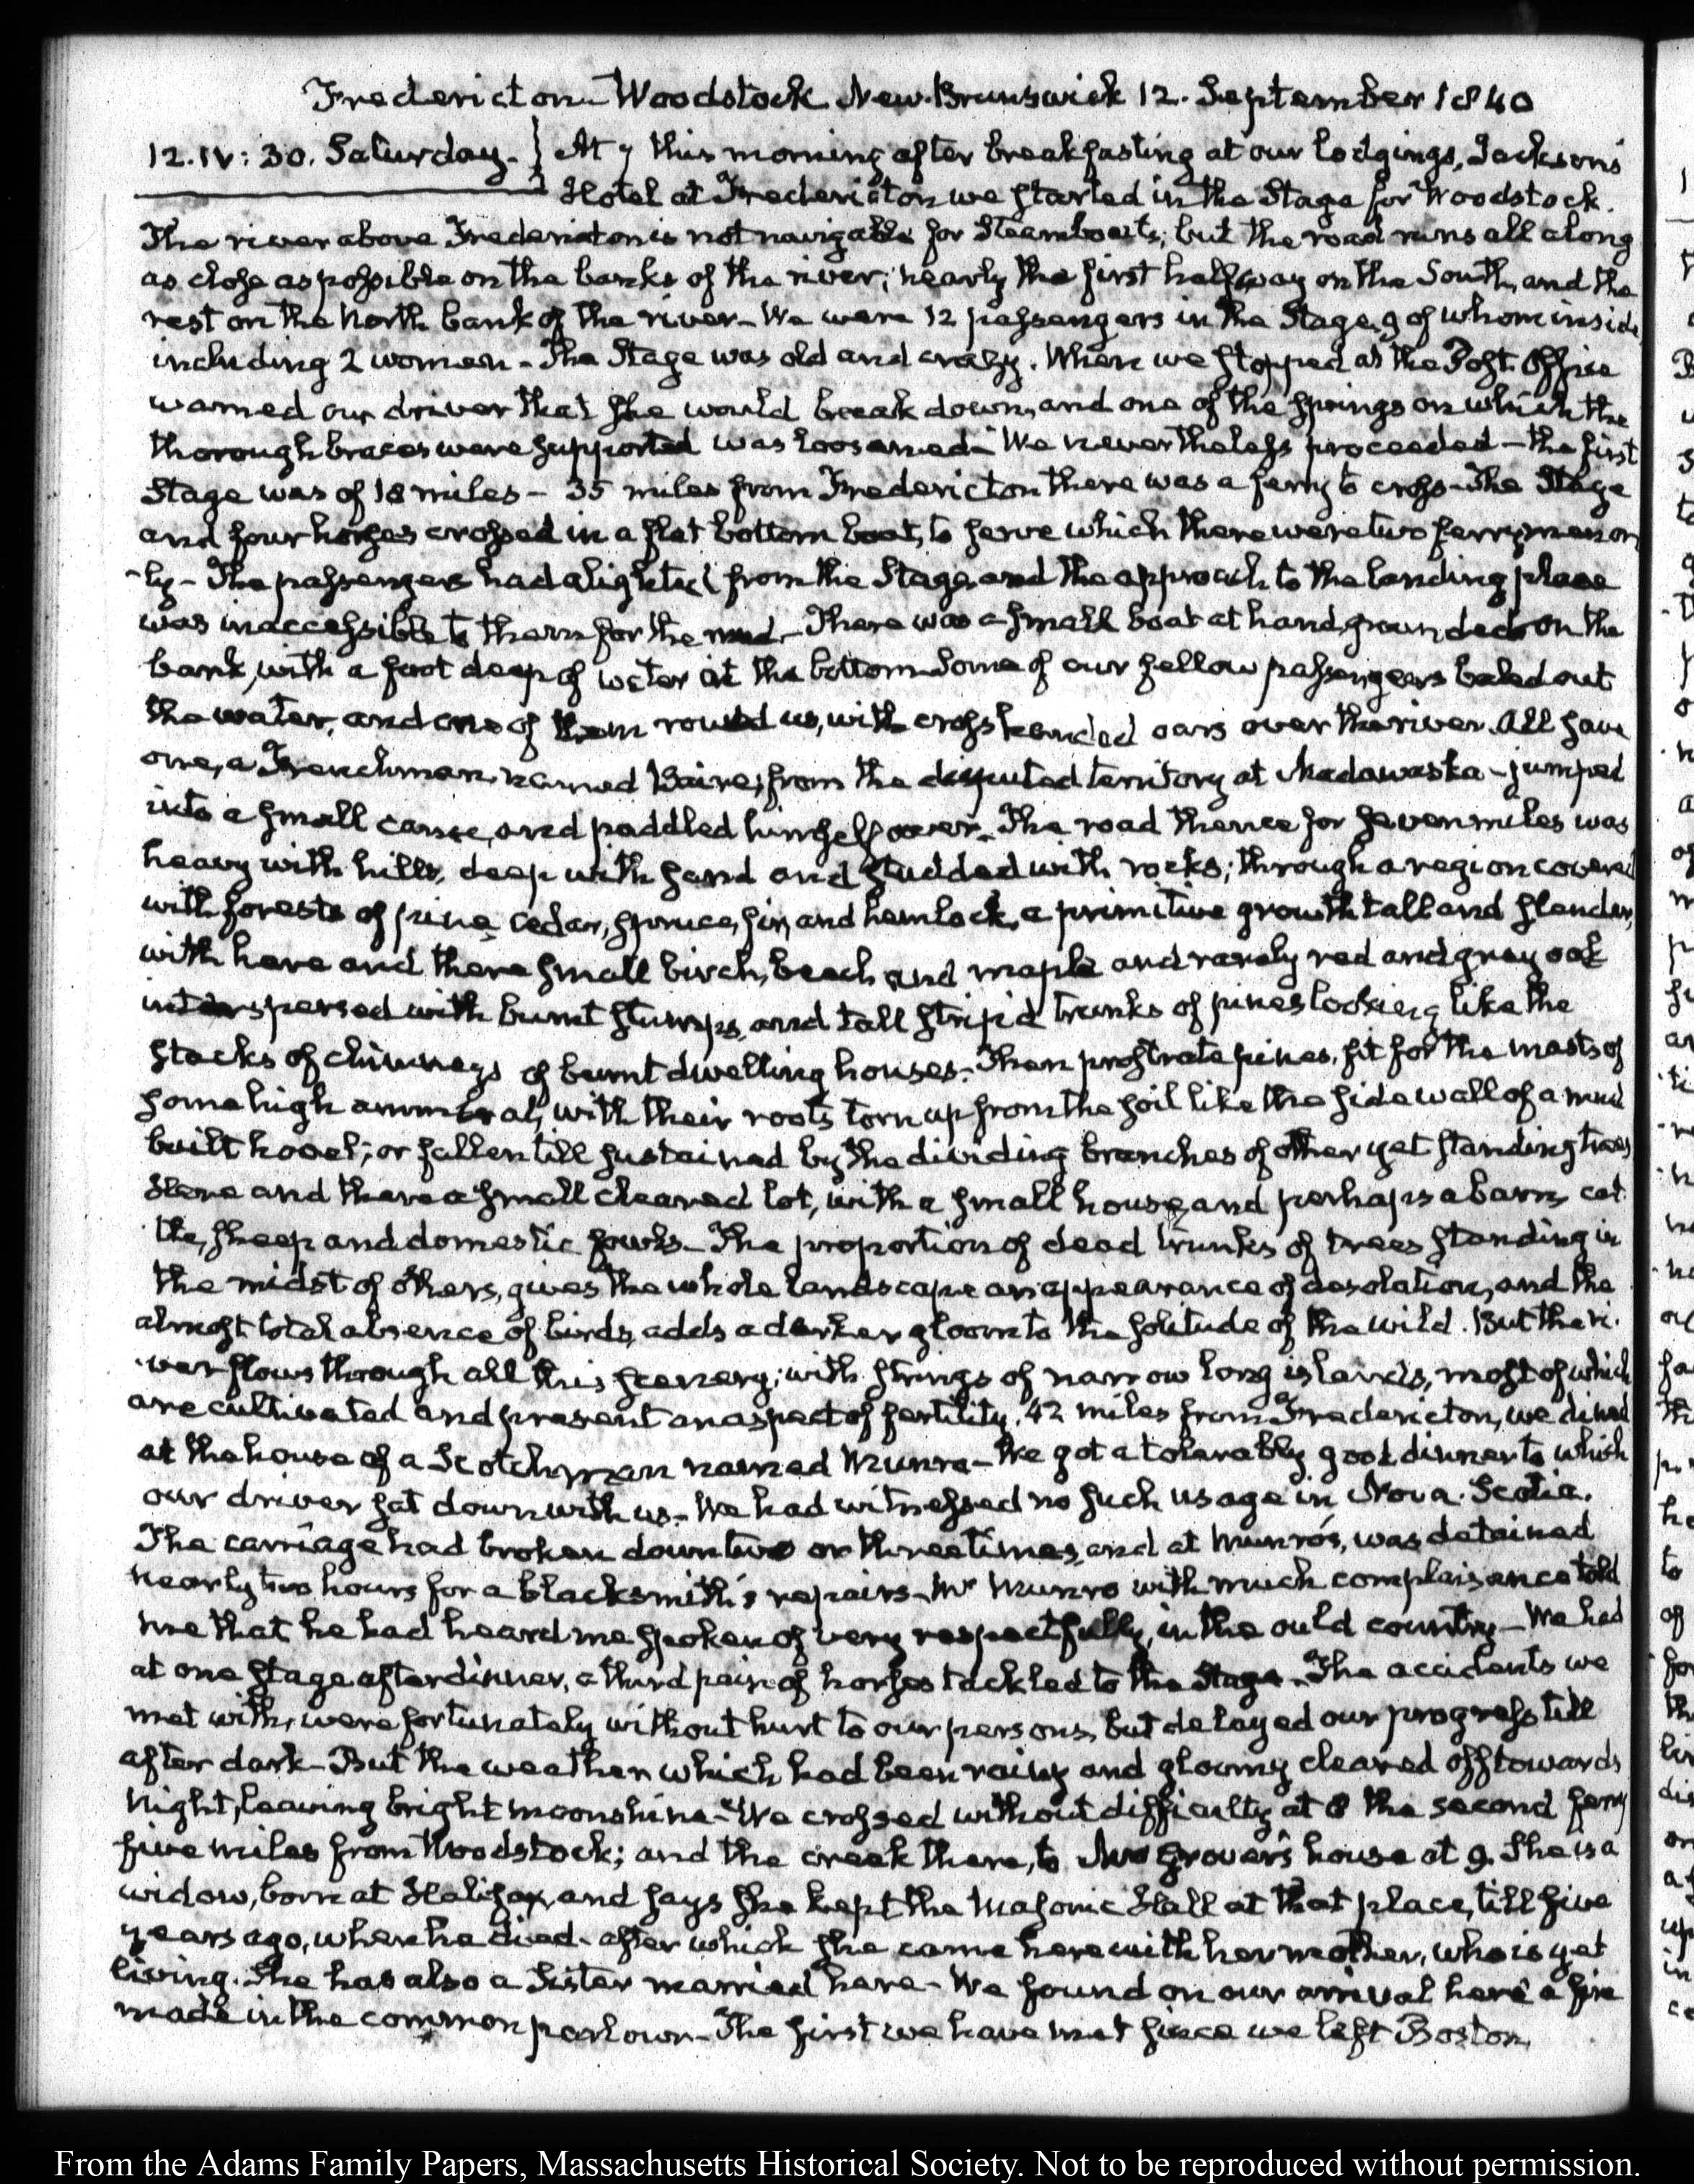 Fredericton – Woodstock New-Brunswick 12. September 1840
12. IV: 30. Saturday. } At 7 this morning after breakfasting at our lodgings, Jackson's
Hotel at Fredericton we started in the Stage for Woodstock.
The river above Fredericton is not navigable for Steamboats; but the road runs all along
as close as possible on the banks of the river; nearly the first half way on the South, and the
rest on the North bank of the river – We were 12 passengers in the Stage, 9 of whom inside
including 2 women – The Stage was old and crazy. When we stopped at the Post-Office
warned our driver that she would break down, and one of the springs on which the
thorough braces were supported was loosened – We nevertheless proceeded – the first
Stage was of 18 miles – 35 miles from Fredericton there was a ferry to cross – The Stage
and four horses crossed in a flat bottom boat, to serve which there were two ferrymen on
-ly – The passengers had alighted from the Stage and the approach to the landing place
was inaccessible to them for the mud – There was a small boat at hand, grounded on the
bank, with a foot deep of water at the bottom – Some of our fellow passengers baled out
the water, and one of them rowed us, with cross handed oars over the river. All save
one, a Frenchman, named from the disputed territory at Madawaska – jumped
into a small canoe, and paddled himself over. The road thence for seven miles was
heavy with hills, deep with sand and studded with rocks; through a region covered
with forests of pine, cedar, spruce, fir, and hemlock, a primitive growth tall and slender,
with here and there small birch, beech and maple and rarely red and gray oak
interspersed with burnt stumps, and tall strip'd trunks of pines looking like the
stacks of chimneys of burnt dwelling houses – Then prostrate pines, fit for the masts of
some high ammiral, with their roots torn up from the soil like the side wall of a mud
built hovel; or fallen till sustained by the dividing branches of other yet standing trees
Here and there a small cleared lot, with a small house, and perhaps a barn, cat
-tle, sheep and domestic fowls – The proportion of dead trunks of trees standing in
the midst of others, gives the whole landscape an appearance of desolation, and the
almost total absence of birds, adds a darker gloom to the solitude of the wild. But the ri-
-ver flows through all this scenery; with strings of narrow long islands, most of which
are cultivated and present an aspect of fertility. 42 miles from Fredericton, we dined
at the house of a Scotchman named Munro – We got a tolerably good dinner to which
our driver sat down with us – We had witnessed no such usage in Nova-Scotia.
The carriage had broken down two or three times, and at Munro's, was detained
nearly two hours for a blacksmith's repairs – Mr Munro with much complaisance told
me that he had heard me spoken of very respectfully, in the ould country – We had
at one stage after dinner, a third pair of horses tackled to the Stage. The accidents we
met with, were fortunately without hurt to our persons, but delayed our progress till
after dark – But the weather which had been rainy and gloomy cleared off towards
night, leaving bright moonshine – We crossed without difficulty at 8 the second ferry
five miles from Woodstock; and the creek there, to Mrs Grover's house at 9. She is a
widow, born at Halifax, and says she kept the Masonic Hall at that place, till five
years ago, when he died – after which she came here with her mother, who is yet
living. She has also a Sister married here – We found on our arrival here a fire
made in the common parlour – The first we have met since we left Boston.
From the Adams Family Papers, Massachusetts Historical Society. Not to be reproduced without permission.